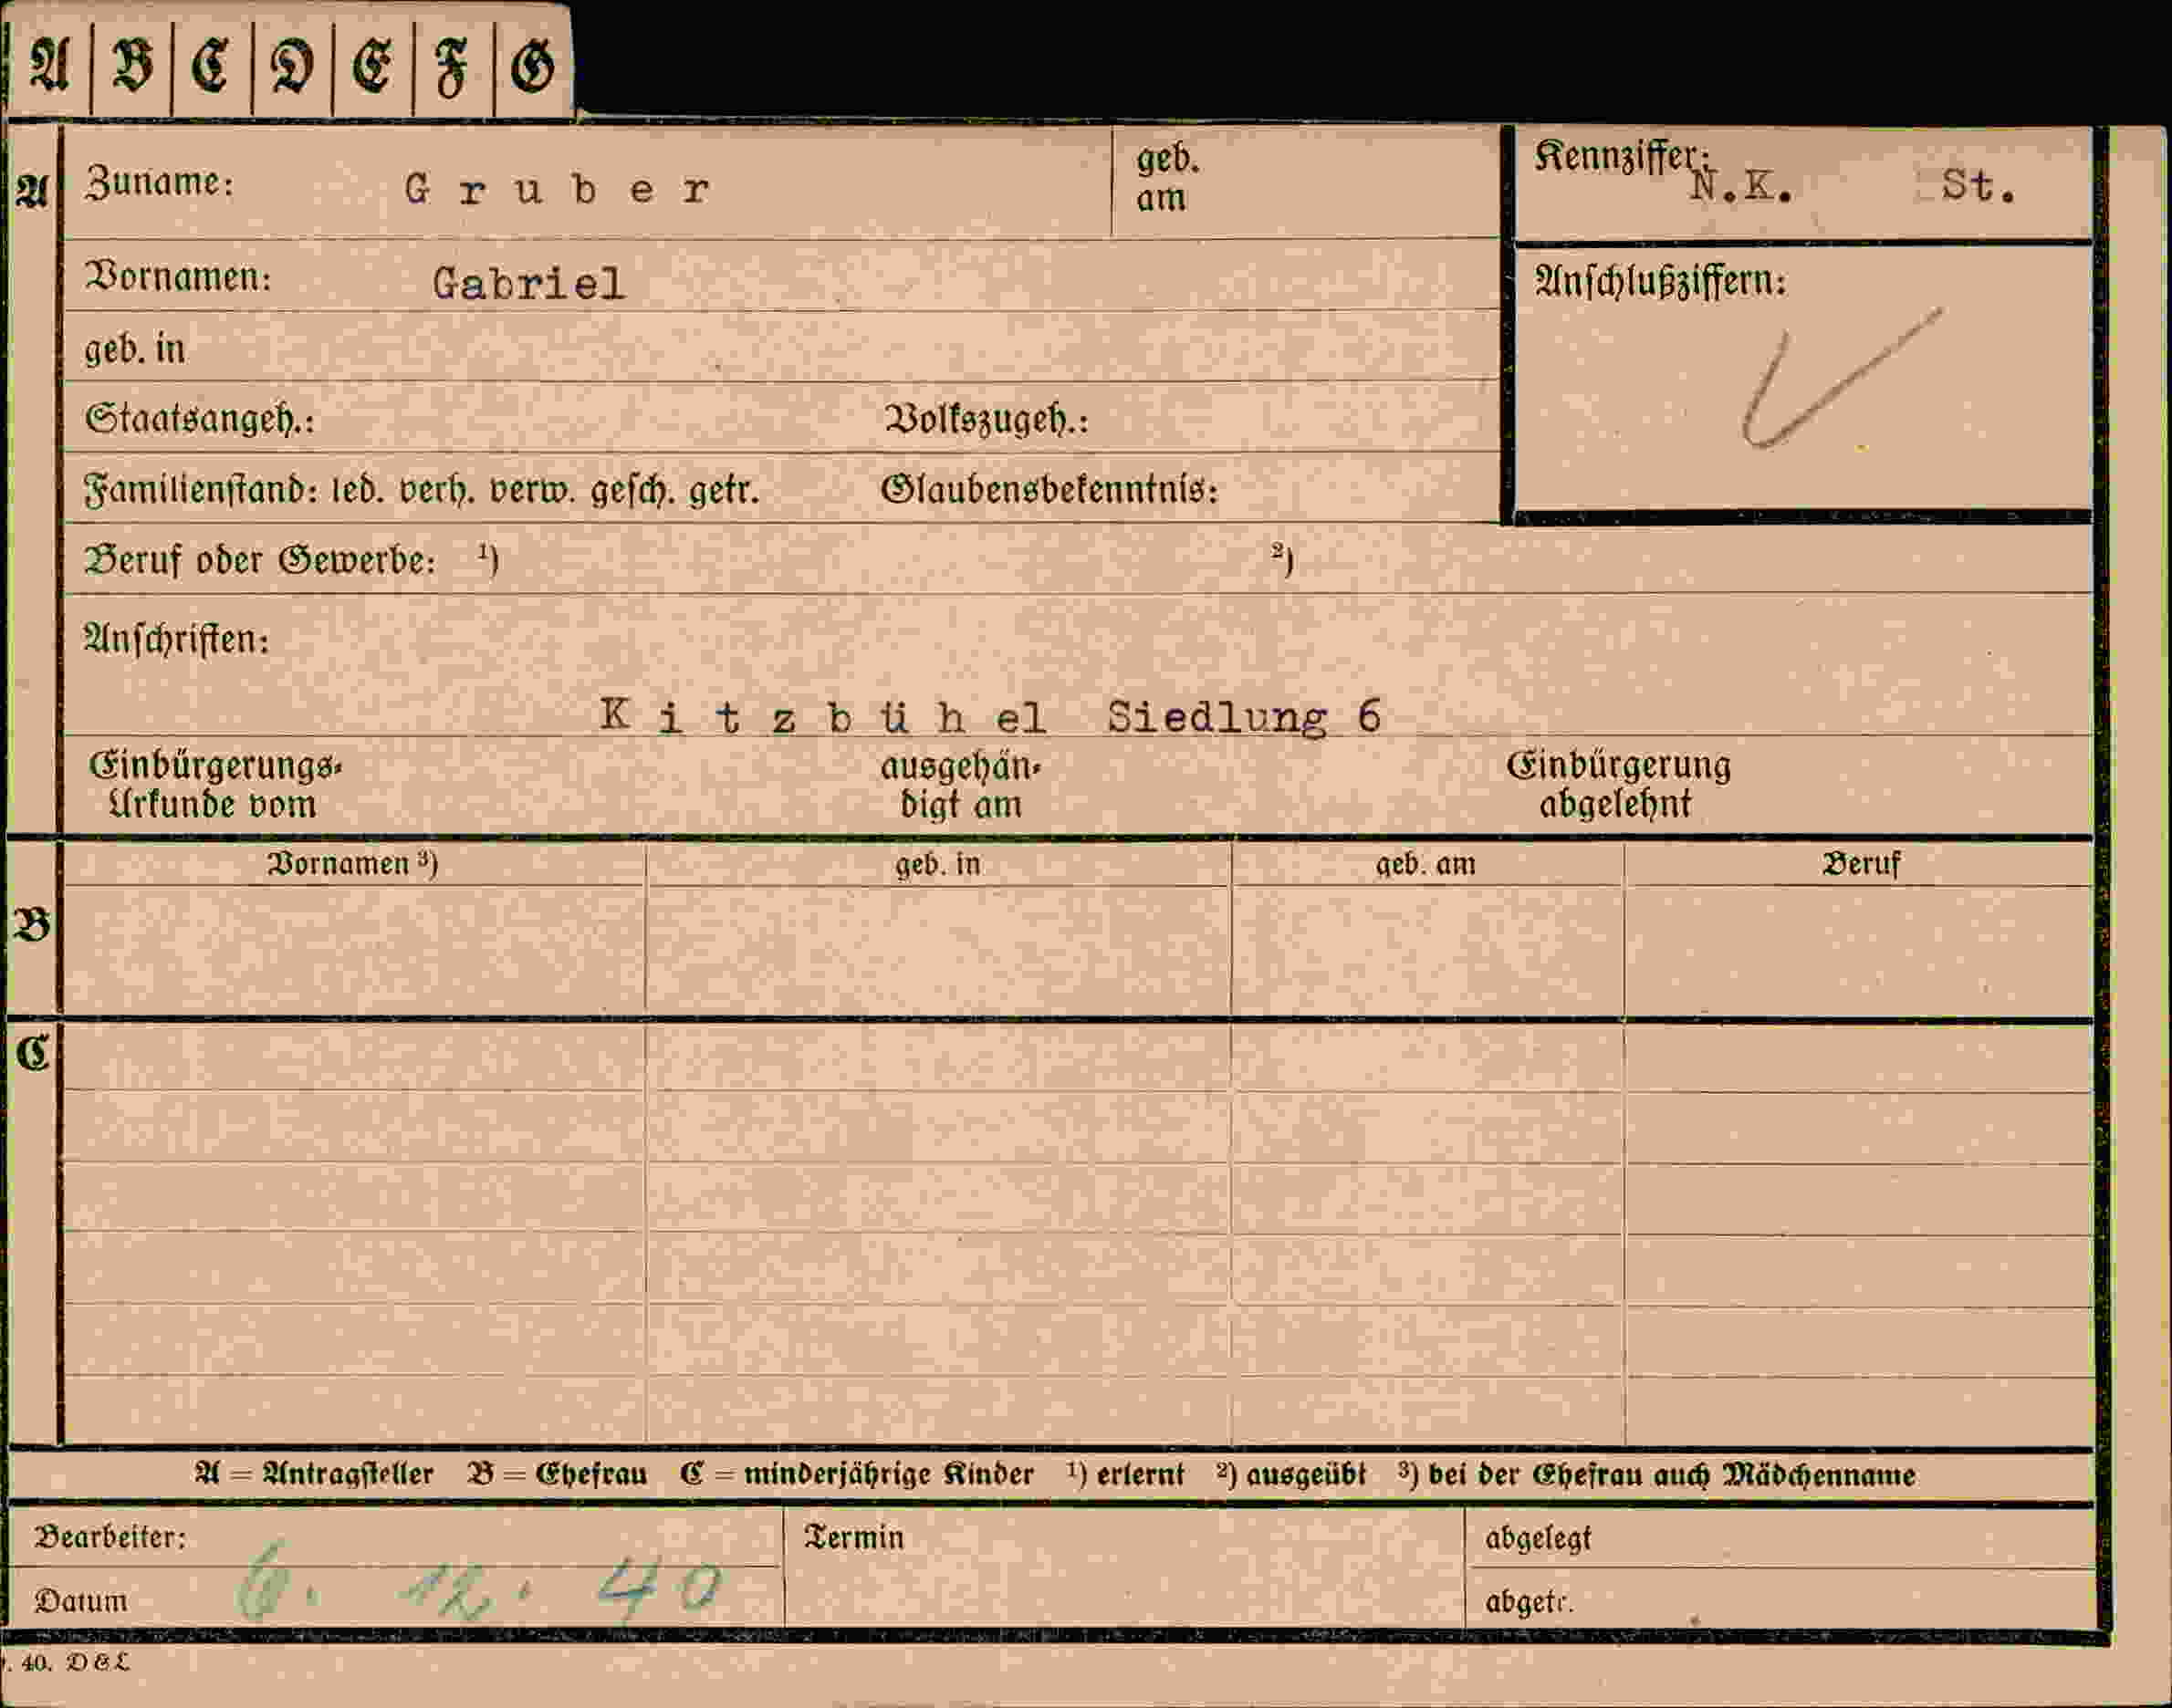 A B C D E F G
A Zuname: Gruber geb. am Kennziffer: N.K. St.
Vornamen: Gabriel Anschlußziffern:
geb. in
Staatsangeh.: Volkszugeh.:
Familienstand: led. verh. verw. gesch. getr. Glaubensbekenntnis:
Beruf oder Gewerbe: ¹) ²)
Anschriften:
Kitzbühel Siedlung 6
Einbürgerungs- ausgehän- Einbürgerung
Urkunde vom digt am abgelehnt
Vornamen ³) geb. in geb. am Beruf
B
C
A = Antragsteller B = Ehefrau C = minderjährige Kinder ¹) erlernt ²) ausgeübt ³) bei der Ehefrau auch Mädchenname
Bearbeiter: Termin abgelegt
Datum 6. 12. 40 abgetr.
. 40. D & L